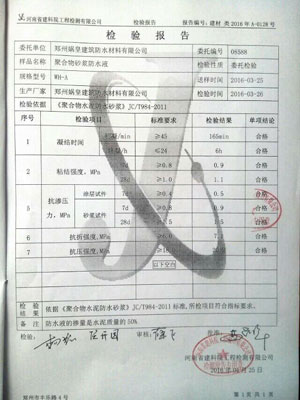 河南省建科院工程检测有限公司 检验报告 报告编号：建材 类 2016年A-0128号
检 验 报 告
委托单位 郑州瑞皇建筑防水材料有限公司 委托编号 08S88
样品名称 聚合物砂浆防水液 检验性质 委托检验
规格型号 WH-A 送样时间 2016-03-25
生产厂家 郑州瑞皇建筑防水材料有限公司 检验时间 2016-03-26
检验依据 《聚合物水泥防水砂浆》JC/T984-2011
序号 检验项目 标准要求 检验结果 单项结论
1 凝结时间 初凝/min ≥45 165min 合格
终凝/h ≤24 6h 合格
2 粘结强度，MPa 7d ≥0.8 0.9 合格
28d ≥1.0 1.1 合格
5 抗渗压力，MPa 涂层试件 7d ≥0.4 0.5 合格
砂浆试件 7d ≥0.8 0.9 合格
28d ≥1.5 合格
6 抗折强度，MPa 合格
7 抗压强度，MPa 合格
以下空白
检验结果 依据《聚合物水泥防水砂浆》JC/T984-2011标准，所检项目符合指标要求。
备注 防水液的掺量是水泥质量的50%
检验： 审核： 批准：
河南省建科院工程检测有限公司
2016年04月25日
郑州市丰乐路4号 第 1 页 共 1 页